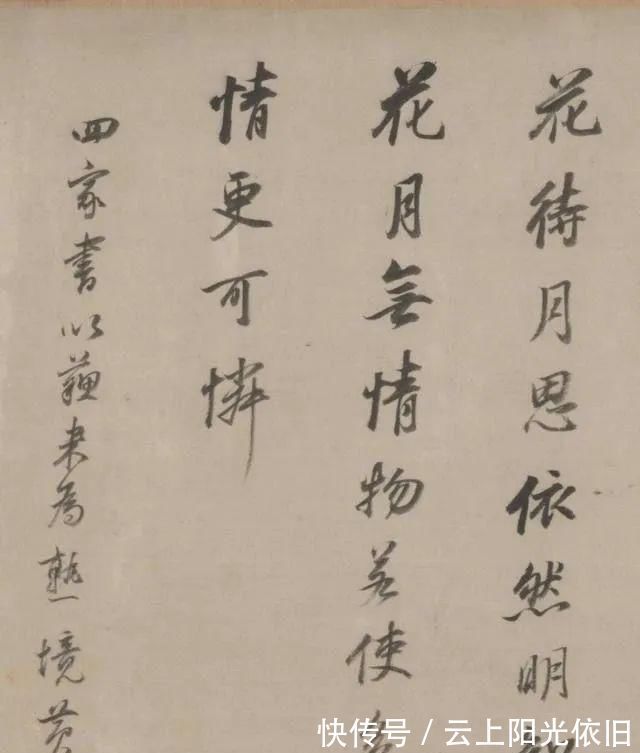 花待月思依然明
花月無情物若使
情更可憐
四家書以蘓米為熟境黄
快传号/云上阳光依旧